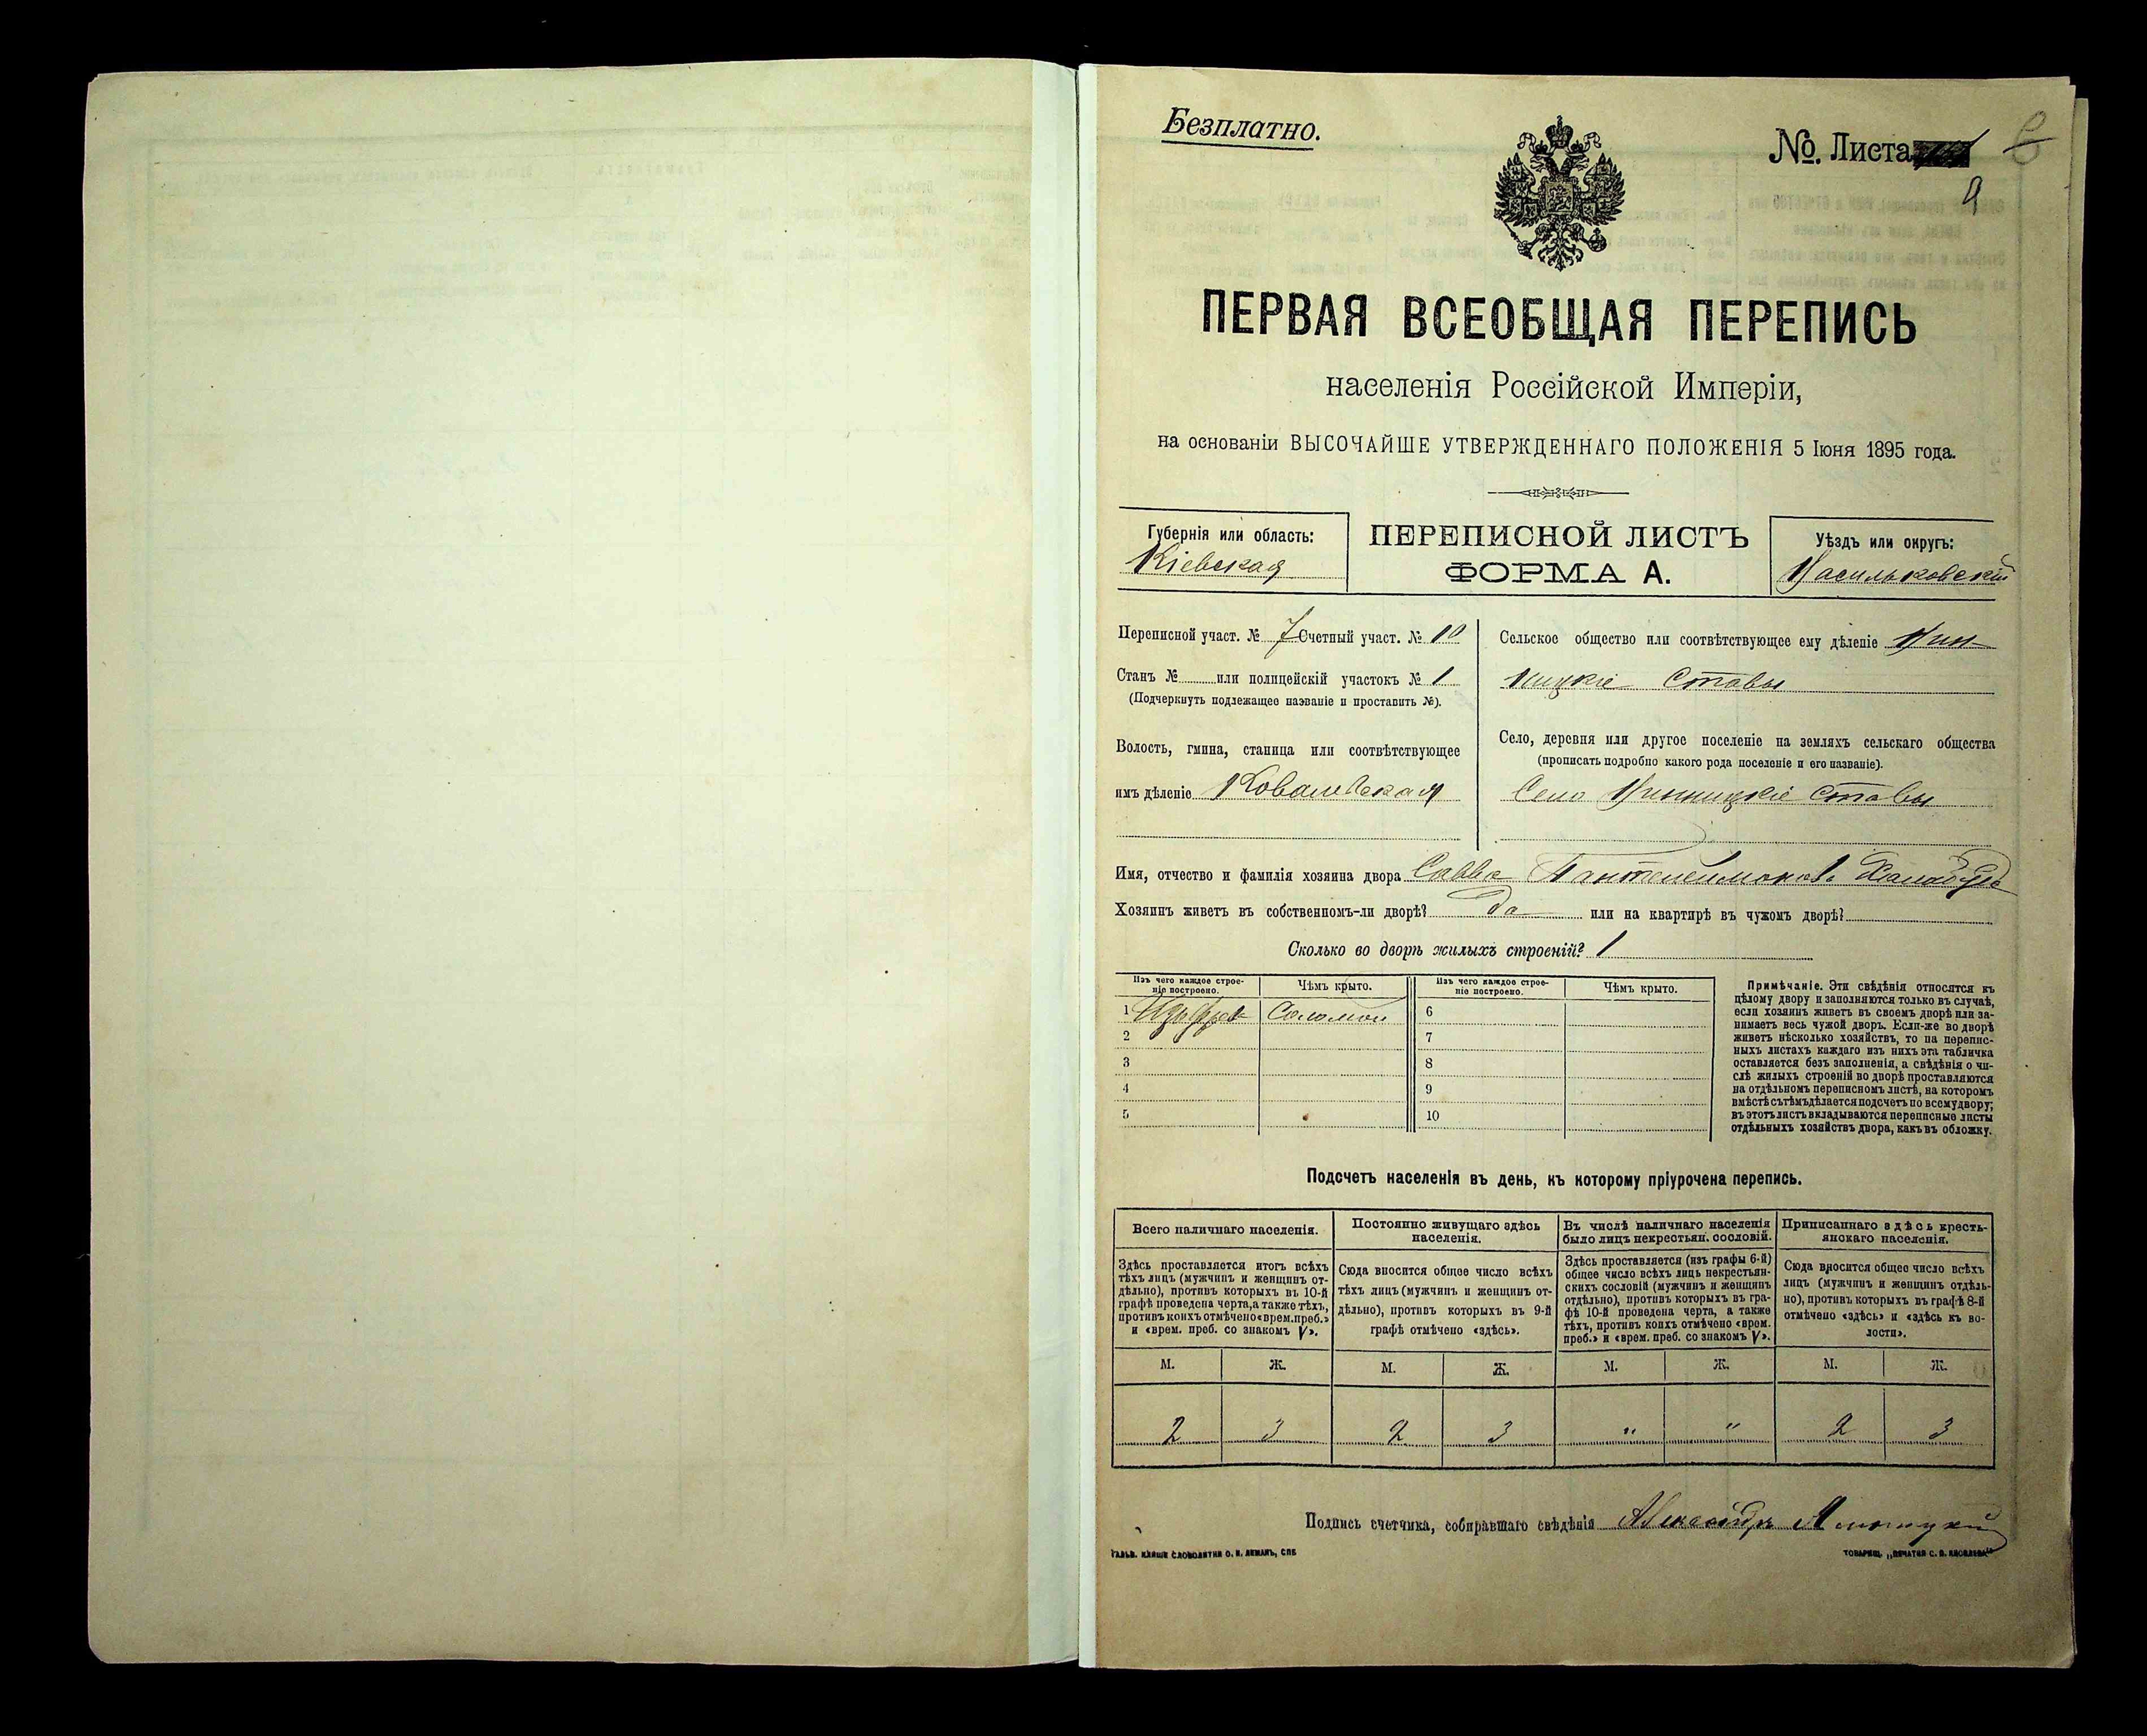 Безплатно.
№. Листа
9
ПЕРВАЯ ВСЕОБЩАЯ ПЕРЕПИСЬ
населенія Россійской Имперіи,
на основаніи ВЫСОЧАЙШЕ УТВЕРЖДЕННАГО ПОЛОЖЕНІЯ 5 Іюня 1895 года.
Губернія или область:
Кіевская
ПЕРЕПИСНОЙ ЛИСТЪ
ФОРМА А.
Уѣздъ или округъ:
Васильковскій
Переписной участ. № 7 Счетный участ. № 10
Станъ № или полицейскій участокъ № 1
(Подчеркнуть подлежащее названіе и проставить №).
Волость, гмина, станица или соотвѣтствующее
имъ дѣленіе Ковалевская
Сельское общество или соотвѣтствующее ему дѣленіе Вин-
ницкіе Ставы
Село, деревня или другое поселеніе на земляхъ сельскаго общества
(прописать подробно какого рода поселеніе и его названіе).
Село Винницкіе Ставы
Имя, отчество и фамилія хозяина двора Савва Пантелеймоновъ
Хозяинъ живетъ въ собственномъ-ли дворѣ? да или на квартирѣ въ чужомъ дворѣ?
Сколько во дворѣ жилыхъ строеній? 1
Изъ чего каждое строе-
ніе построено.
Чѣмъ крыто.
Изъ чего каждое строе-
ніе построено.
Чѣмъ крыто.
1 Соломой 6
2 7
3 8
4 9
5 10
Примѣчаніе. Эти свѣдѣнія относятся къ
цѣлому двору и заполняются только въ случаѣ,
если хозяинъ живетъ въ своемъ дворѣ или за-
нимаетъ весь чужой дворъ. Если-же во дворѣ
живетъ нѣсколько хозяйствъ, то на перепис-
ныхъ листахъ каждаго изъ нихъ эта табличка
оставляется безъ заполненія, а свѣдѣнія о чи-
слѣ жилыхъ строеній во дворѣ проставляются
на отдѣльномъ переписномъ листѣ, на которомъ
вмѣстѣ съ тѣмъ дѣлается подсчетъ по всему двору;
въ этотъ листъ вкладываются переписные листы
отдѣльныхъ хозяйствъ двора, какъ въ обложку.
Подсчетъ населенія въ день, къ которому пріурочена перепись.
Всего наличнаго населенія.
Здѣсь проставляется итогъ всѣхъ
тѣхъ лицъ (мужчинъ и женщинъ от-
дѣльно), противъ которыхъ въ 10-й
графѣ проведена черта, а также тѣхъ,
противъ коихъ отмѣчено «врем. преб.»
и «врем. преб. со знакомъ V».
Постоянно живущаго здѣсь
населенія.
Сюда вносится общее число всѣхъ
тѣхъ лицъ (мужчинъ и женщинъ от-
дѣльно), противъ которыхъ въ 9-й
графѣ отмѣчено «здѣсь».
Въ числѣ наличнаго населенія
было лицъ некрестьян. сословій.
Здѣсь проставляется (изъ графы 6-й)
общее число всѣхъ лицъ некрестьян-
скихъ сословій (мужчинъ и женщинъ
отдѣльно), противъ которыхъ въ гра-
фѣ 10-й проведена черта, а также
тѣхъ, противъ коихъ отмѣчено «врем.
преб.» и «врем. преб. со знакомъ V».
Приписаннаго здѣсь кресть-
янскаго населенія.
Сюда вносится общее число всѣхъ
лицъ (мужчинъ и женщинъ отдѣль-
но), противъ которыхъ въ графѣ 8-й
отмѣчено «здѣсь» и «здѣсь къ во-
лости».
М. Ж. М. Ж. М. Ж. М. Ж.
2 3 2 3 " " 2 3
Подпись счетчика, собиравшаго свѣдѣнія Александръ
ГАЛЬВ. КЛИШЕ СЛОВОЛИТНИ О. И. ЛЕМАНЪ, СПБ
ТОВАРИЩ. „ПЕЧАТНЯ С. П. ЯКОВЛЕВА"